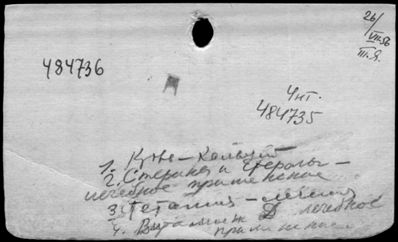 26/
VII-56
III.Я.
484736
Чнт.
484735
1.
2. Стерины и стеролы -
лечебное применение
3. Тетания - лечение
4. Витамин Д лечебное
применение